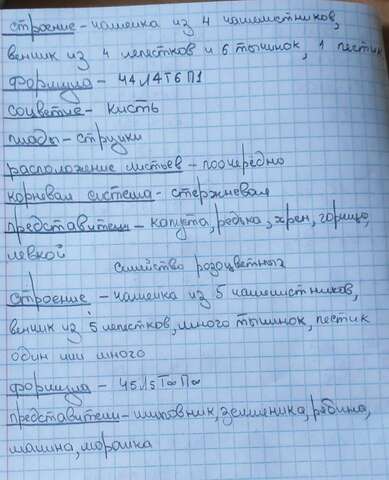 строение - чашечка из 4 чашелистников,
венчик из 4 лепестков и 6 тычинок, 1 пестик
Формула - Ч4Л4Т6П1
соцветие - кисть
плоды - стручки
расположение листьев - поочередно
корневая система - стержневая
представители - капуста, редька, хрен, горчица,
левкой
семейство розоцветных
строение - чашечка из 5 чашелистников,
венчик из 5 лепестков, много тычинок, пестик
один или много
формула - Ч5Л5Т∞П∞
представители - шиповник, земляника, рябина,
малина, морошка